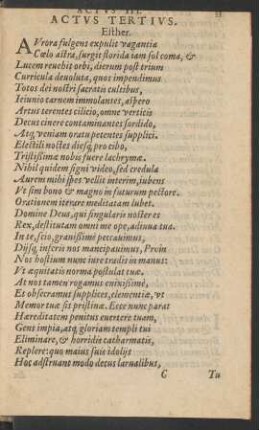 ACTVS III. 33
ACTVS TERTIVS.
Esther.
AVrora fulgens expulit vagantia
Cœlo astra, surgit florida iam sol coma, &
Lucem reuehit orbi, dierum post trium
Curricula deuoluta, quos impendimus
Totos dei nostri sacratis cultibus,
Ieiunio carnem immolantes, aspero
Artus terentes cilicio, omne verticis
Decus cinere contaminantes sordido,
Atq; veniam oratu petentes supplici.
Electili noctes diesq; pro cibo,
Tristissima nobis fuere lachrymæ.
Nihil quidem signi video, sed credula
Aurem mihi spes vellit interim, iubens
Vt sim bono & magno in futurum pectore.
Orationem iterare meditatam lubet.
Domine Deus, qui singularis noster es
Rex, destitutam omni me ope, adiuua tua.
In te, scio, grauissimè peccauimus,
Dijsq; inferis nos mancipauimus, Proin
Nos hostium nunc iure tradis in manus:
Vt æquitatis norma postulat tuæ.
At nos tamen rogamus enixissimè,
Et obsecramus supplices, clementiæ, vt
Memor tuæ sis pristinæ. Ecce nunc parat
Hæreditatem penitus euertere tuam,
Gens impia, atq; gloriam templi tui
Eliminare, & horridis catharmatis,
Replere: quo maius suis idolis
Hoc adstruant modo decus laruálibus,
C Tu